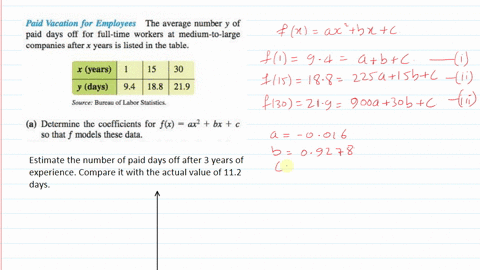 Paid Vacation for Employees The average number y of
paid days off for full-time workers at medium-to-large
companies after x years is listed in the table.
x (years) 1 15 30
y (days) 9.4 18.8 21.9
Source: Bureau of Labor Statistics.
(a) Determine the coefficients for f(x) = ax² + bx + c
so that f models these data.
Estimate the number of paid days off after 3 years of
experience. Compare it with the actual value of 11.2
days.
f(x) = ax²+bx+c
f(1) = 9.4 = a+b+c —(i)
f(15) = 18.8 = 225a+15b+c —(ii)
f(30) = 21.9 = 900a+30b+c —(iii)
a = -0.016
b = 0.9278